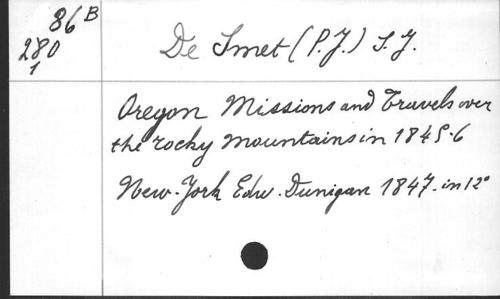 86 B
280
1
De Smet (P.J.) S.J.
Oregon Missions and Travels over
the rocky mountains in 1845-6
New-York Edw. Dunigan 1847. in 12°